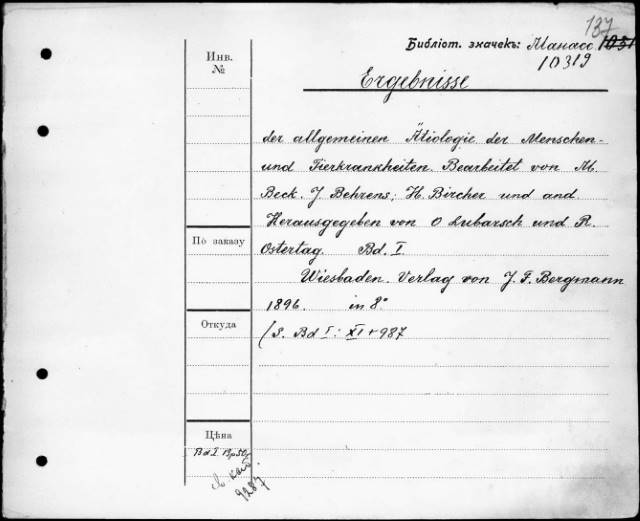 137
Библіот. значекъ: Манасс 1051
10319
Инв.
№
Ergebnisse
der allgemeinen Ätiologie der Menschen-
und Tierkrankheiten. Bearbeitet von M.
Beck. J. Behrens; H. Bircher und and.
Herausgegeben von O Lubarsch und R.
По заказу
Ostertag. Bd. I
Wiesbaden. Verlag von J. F. Bergmann
1896. in 8°
Откуда
(S. Bd I: XI + 987
Цѣна
Bd. I.
9287.